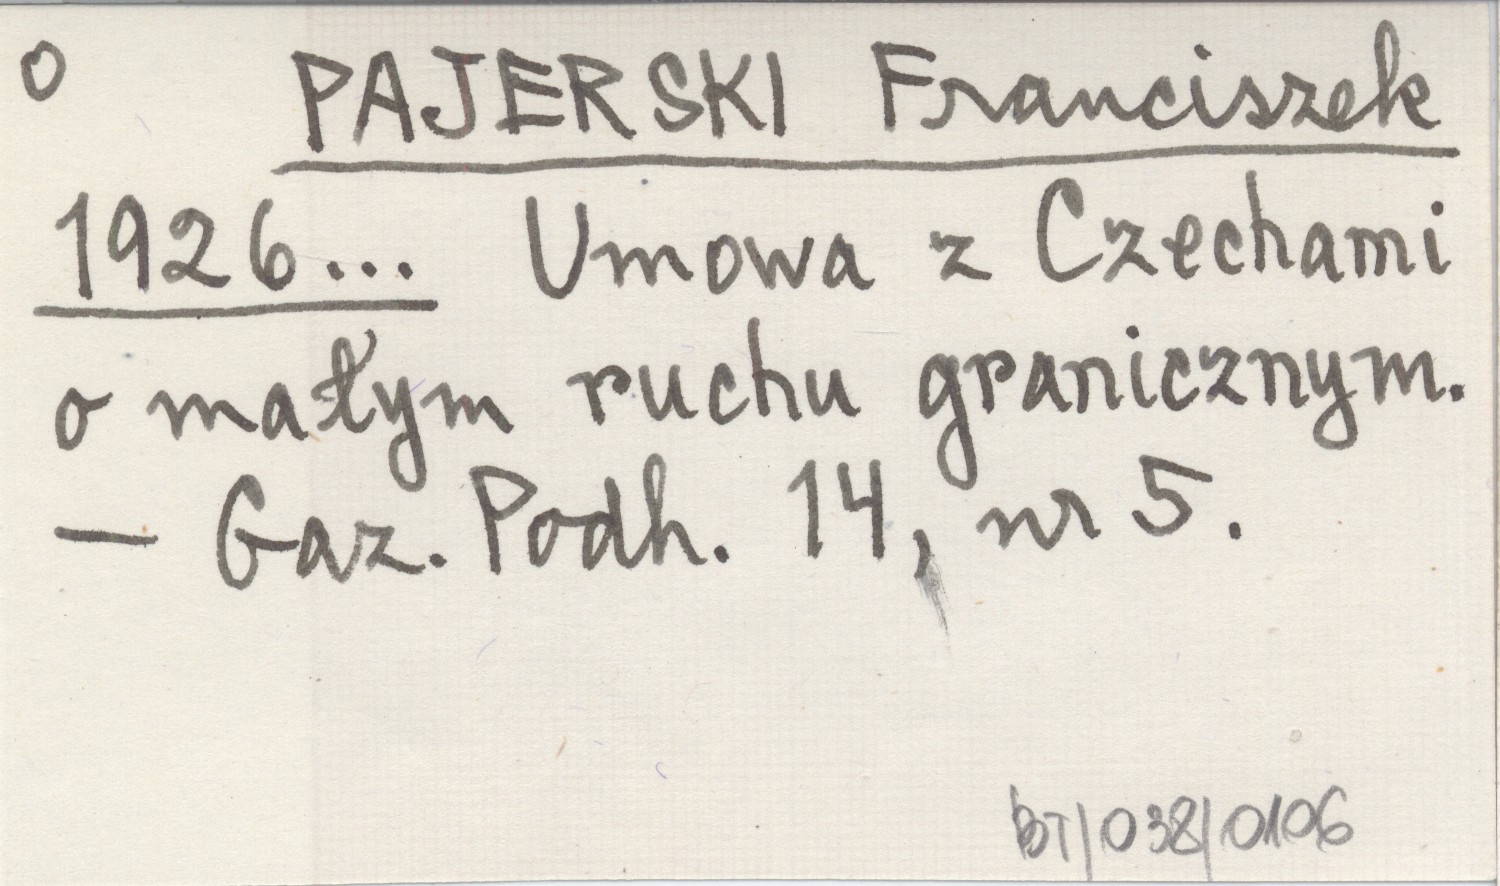 o PAJERSKI Franciszek
1926... Umowa z Czechami
o małym ruchu granicznym.
— Gaz. Podh. 14, nr 5.
BT/038/0106